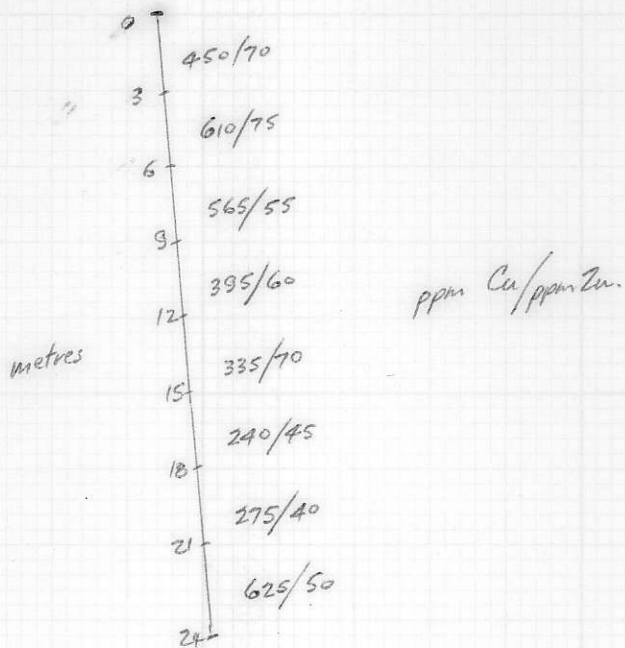 0
450/70
3
610/75
6
565/55
9
395/60
ppm Cu/ppm Zn.
12
metres
335/70
15
240/45
18
275/40
21
625/50
24